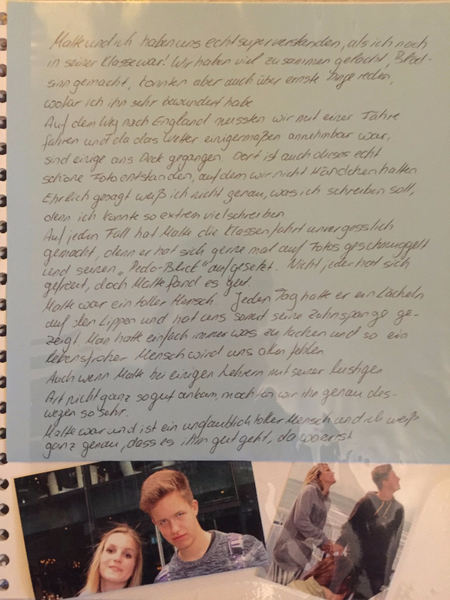 Malte und ich haben uns echt super verstanden, als ich noch
in seiner Klasse war! Wir haben viel zusammen gelacht, Blöd-
sinn gemacht, konnten aber auch über ernste Dinge reden,
wofür ich ihn sehr bewundert habe.
Auf dem Weg nach England mussten wir mit einer Fähre
fahren und da das Wetter einigermaßen annehmbar war,
sind einige ans Deck gegangen. Dort ist auch dieses echt
schöne Foto entstanden, auf dem wir nicht Händchen halten
Ehrlich gesagt weiß ich nicht genau, was ich schreiben soll,
denn ich könnte so extrem viel schreiben
Auf jeden Fall hat Malte die Klassenfahrt unvergesslich
gemacht, denn er hat sich gerne mal auf Fotos geschmuggelt
und seinen „Pedo-Blick" aufgesetzt. Nicht jeder hat sich
gefreut, doch Malte fand es gut.
Malte war ein toller Mensch! Jeden Tag hatte er ein Lächeln
auf den Lippen und hat uns somit seine Zahnspange ge-
zeigt. Man hatte einfach immer was zu lachen und so ein
lebensfroher Mensch wird uns allen fehlen
Auch wenn Malte bei einigen Lehrern mit seiner lustigen
Art nicht ganz so gut ankam, mochten wir ihn genau des-
wegen so sehr.
Malte war und ist ein unglaublich toller Mensch und ich weiß
ganz genau, dass es ihm gut geht, da wo er ist